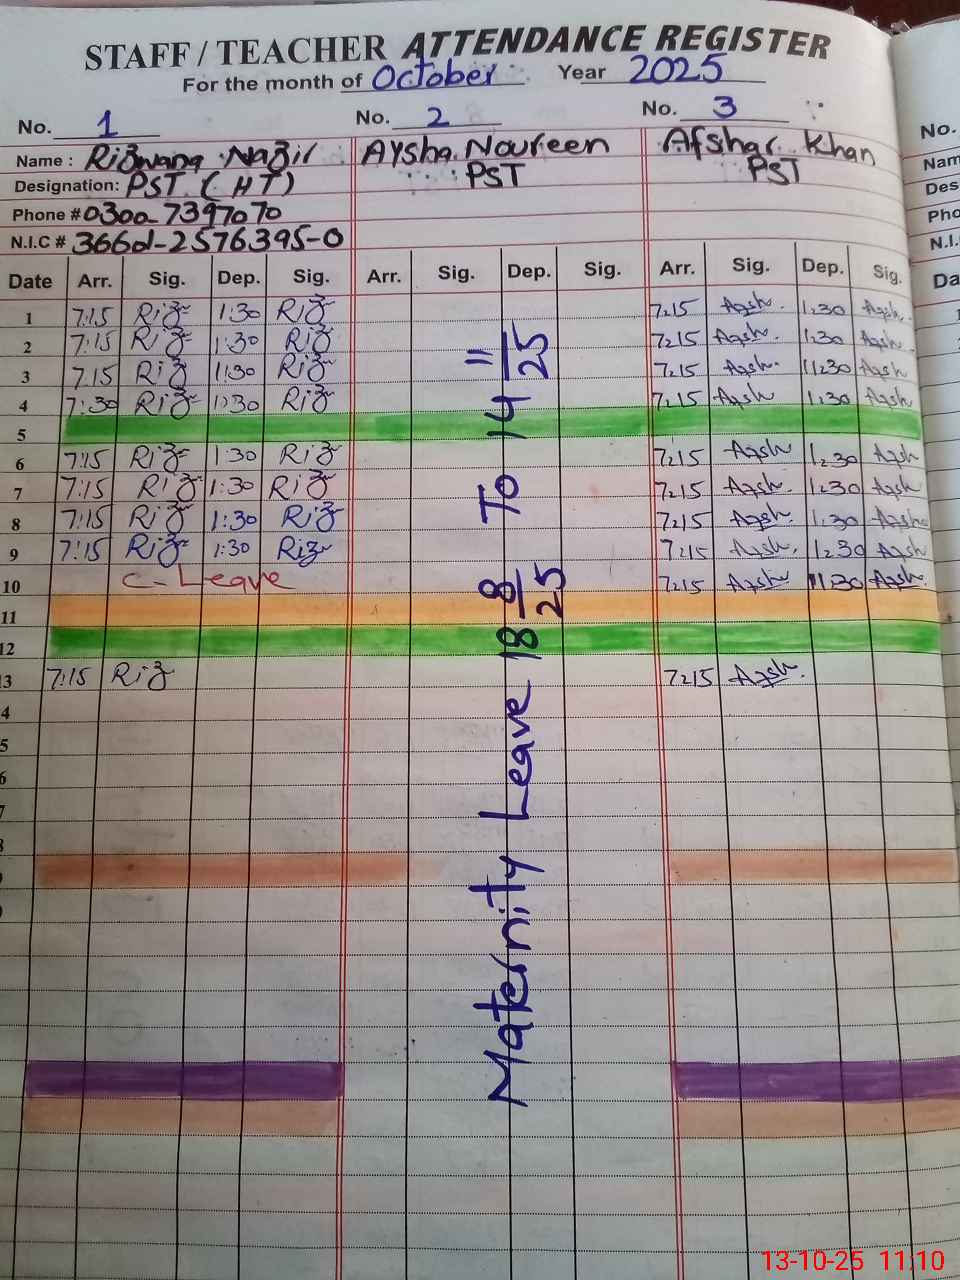 STAFF / TEACHER ATTENDANCE REGISTER
For the month of October Year 2025
No. 1 No. 2 No. 3
Name : Rizwana Nazir Aysha Noureen Afshar Khan
Designation: PST (HT) PST PST
Phone # 0300-7397070
N.I.C # 36601-2576395-0
Date Arr. Sig. Dep. Sig. Arr. Sig. Dep. Sig. Arr. Sig. Dep. Sig.
1 7:15 Riz 1:30 Riz 7:15 1:30
2 7:15 Riz 1:30 Riz 7:15 1:30
3 7:15 Riz 1:30 Riz 7:15 1:30
4 7:30 Riz 1:30 Riz 7:15 1:30
5
6 7:15 Riz 1:30 Riz 7:15 1:30
7 7:15 Riz 1:30 Riz 7:15 1:30
8 7:15 Riz 1:30 Riz 7:15 1:30
9 7:15 Riz 1:30 Riz 7:15 1:30
10 C-Leave 7:15 1:30
11
12
3 7:15 Riz 7:15
4
5
6
7
8
Maternity Leave 18 8/25 To 14 11/25
No.
Nam
Des
Pho
N.I.
Da
13-10-25 11:10